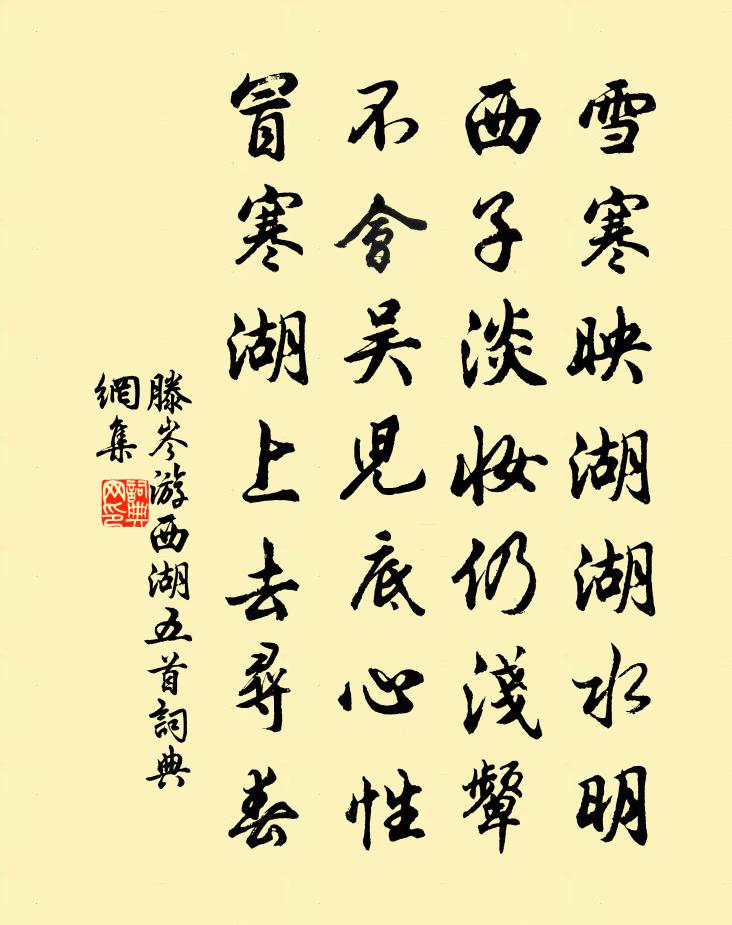 雪寒映湖湖水明
西子淡妝仍淺顰
不會吳兒底心性
冒寒湖上去尋春
滕岑游西湖五首詞典
網集
詞典
网